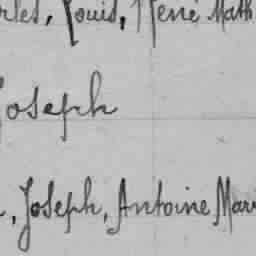 rles, Louis, René Math
Joseph
, Joseph, Antoine Mari